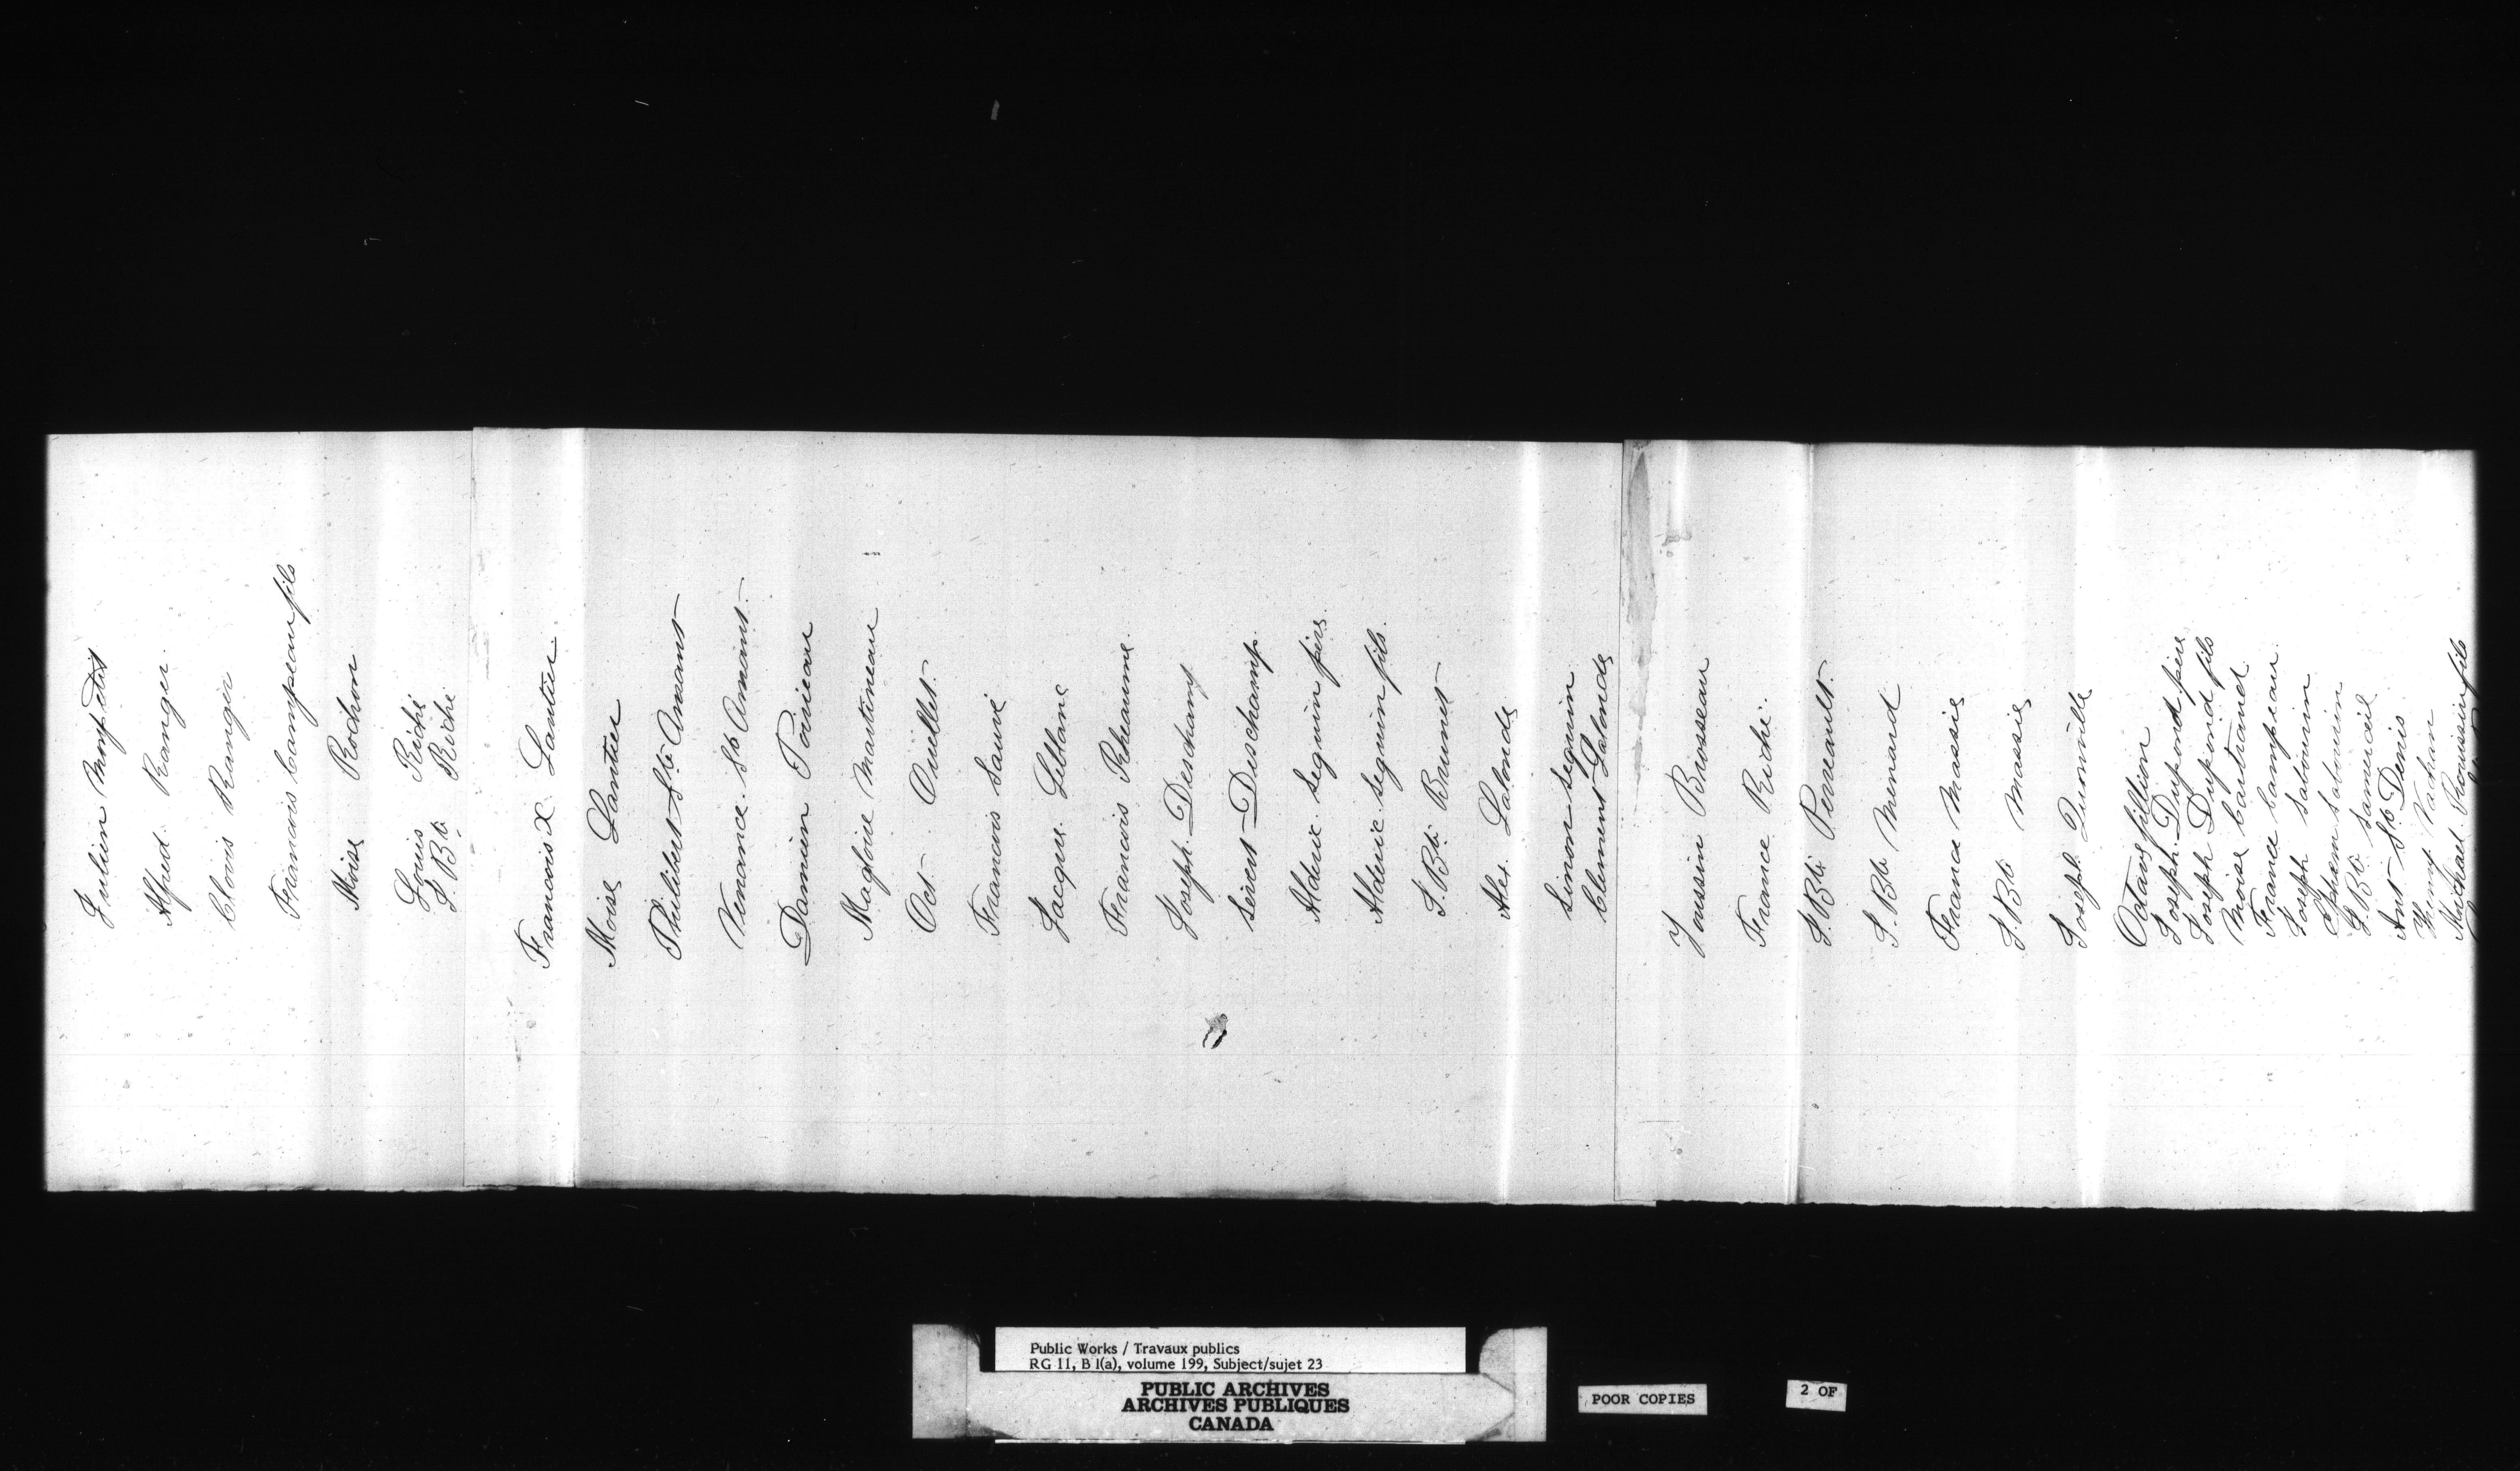 Julien Monpetit
Alfred Ranger.
Clovis Ranger
Francois Campeau fils
Moise Rochon
Louis Riché
J. Bte Riché
Francois X Lantier
Moise Lantier
Philibert St. Amant
Venance St Amant.
Damien Poirieau
Magloire Martineau
Oct. Ouellet.
Francois Sauvé
Jacques Leblanc
Francois Rheaume.
Joseph Deschamp
Sévert Deschamp.
Alderic Seguin père.
Alderic Seguin fils.
J. Bte Brunet
Alex. Lalonde
Simon Seguin
Clement Lalonde
Toussin Brosseau
France Riché.
J. Bte Perrault.
J. Bte Menard
France Massie
J. Bte Massie
Joseph Quenville
Octave fillion
Joseph Dupond père
Joseph Dupond fils
Moise
France Campeau.
Joseph Sabourin
Ephrem Sabourin
J. Bte
Ant St. Denis
Henry Vachon
Michael fils
Public Works / Travaux publics
RG 11, B 1(a), volume 199, Subject/sujet 23
PUBLIC ARCHIVES
ARCHIVES PUBLIQUES
CANADA
POOR COPIES
2 OF